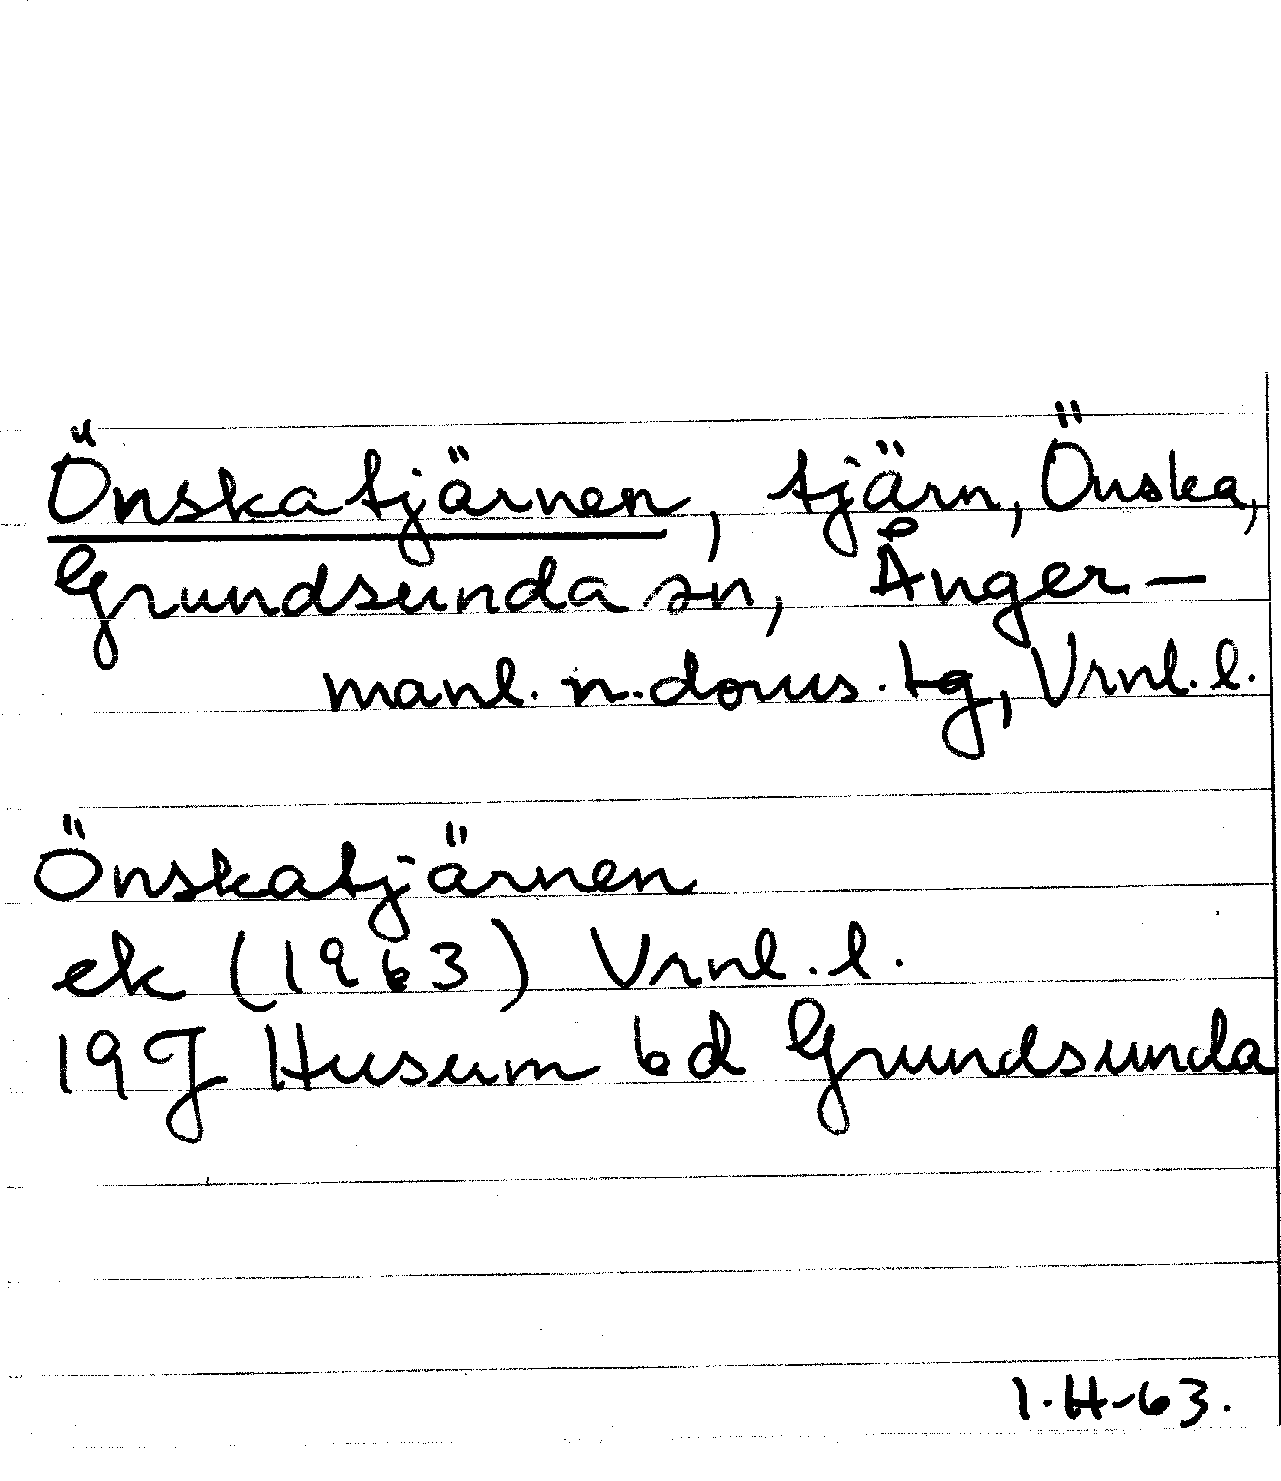 Önskatjärnen, tjärn, Önska,
Grundsunda sn, Ånger-
manl. n. doms. tg, Vrnl. l.
Önskatjärnen
ek (1963) Vrnl. l.
19 J Husum bd Grundsunda
I.H-63.